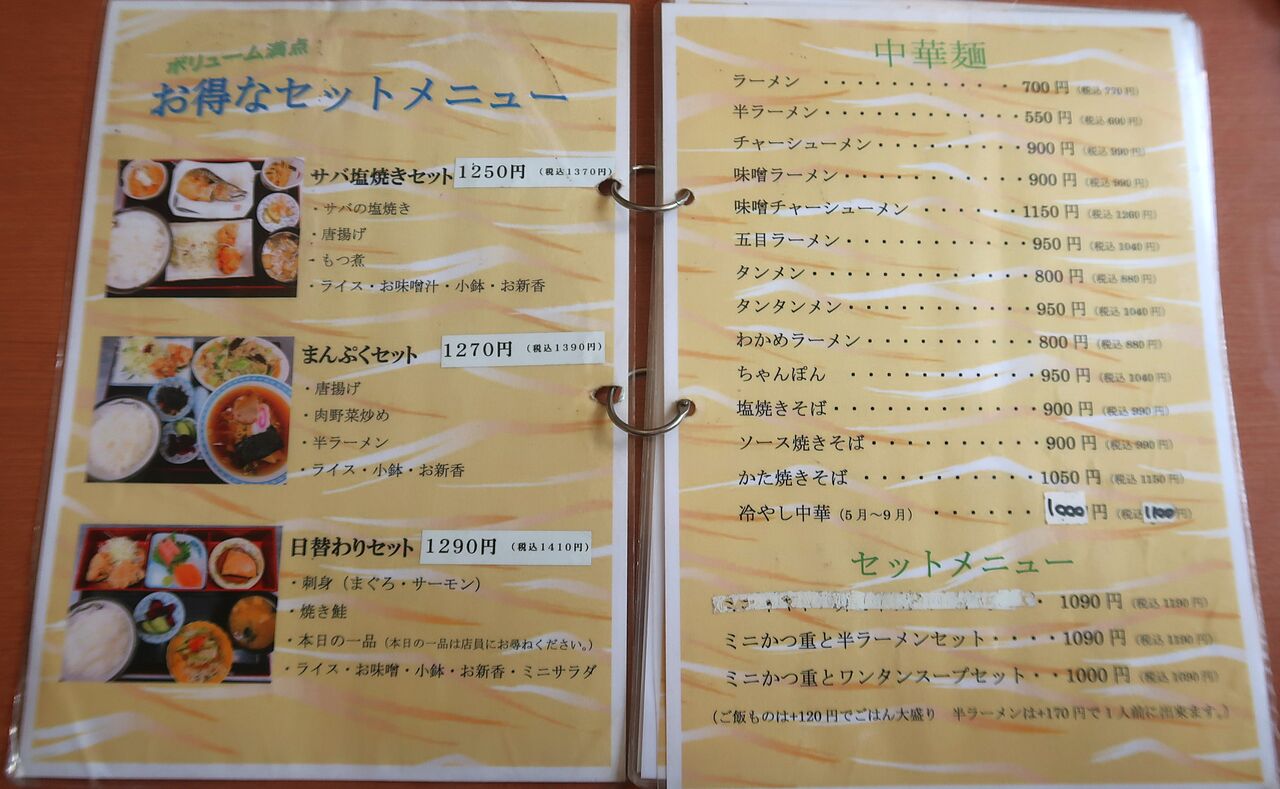 ボリューム満点
お得なセットメニュー
サバ塩焼きセット 1250円 (税込1370円)
・サバの塩焼き
・唐揚げ
・もつ煮
・ライス・お味噌汁・小鉢・お新香
まんぷくセット 1270円 (税込1390円)
・唐揚げ
・肉野菜炒め
・半ラーメン
・ライス・小鉢・お新香
日替わりセット 1290円 (税込1410円)
・刺身（まぐろ・サーモン）
・焼き鮭
・本日の一品（本日の一品は店員にお尋ねください。）
・ライス・お味噌・小鉢・お新香・ミニサラダ
中華麺
ラーメン ・・・・・・・・・・ 700円（税込 770円）
半ラーメン・・・・・・・・・・ 550円（税込 600円）
チャーシューメン・・・・・・・・ 900円（税込 990円）
味噌ラーメン・・・・・・・・・ 900円（税込 990円）
味噌チャーシューメン ・・・・・・1150円（税込 1260円）
五目ラーメン・・・・・・・・・・950円（税込 1040円）
タンメン・・・・・・・・・・・・800円（税込 880円）
タンタンメン・・・・・・・・・・950円（税込 1040円）
わかめラーメン・・・・・・・・・800円（税込 880円）
ちゃんぽん ・・・・・・・・・・950円（税込 1040円）
塩焼きそば・・・・・・・・・・・900円（税込 990円）
ソース焼きそば・・・・・・・・・900円（税込 990円）
かた焼きそば ・・・・・・・・・1050円（税込 1150円）
冷やし中華（5月～9月） ・・・・・・1000円（税込1100円）
セットメニュー
・ 1090円（税込 1190円）
ミニかつ重と半ラーメンセット・・・・1090円（税込 1190円）
ミニかつ重とワンタンスープセット・・1000円（税込 1090円）
（ご飯ものは+120円でごはん大盛り 半ラーメンは+170円で1人前に出来ます。）